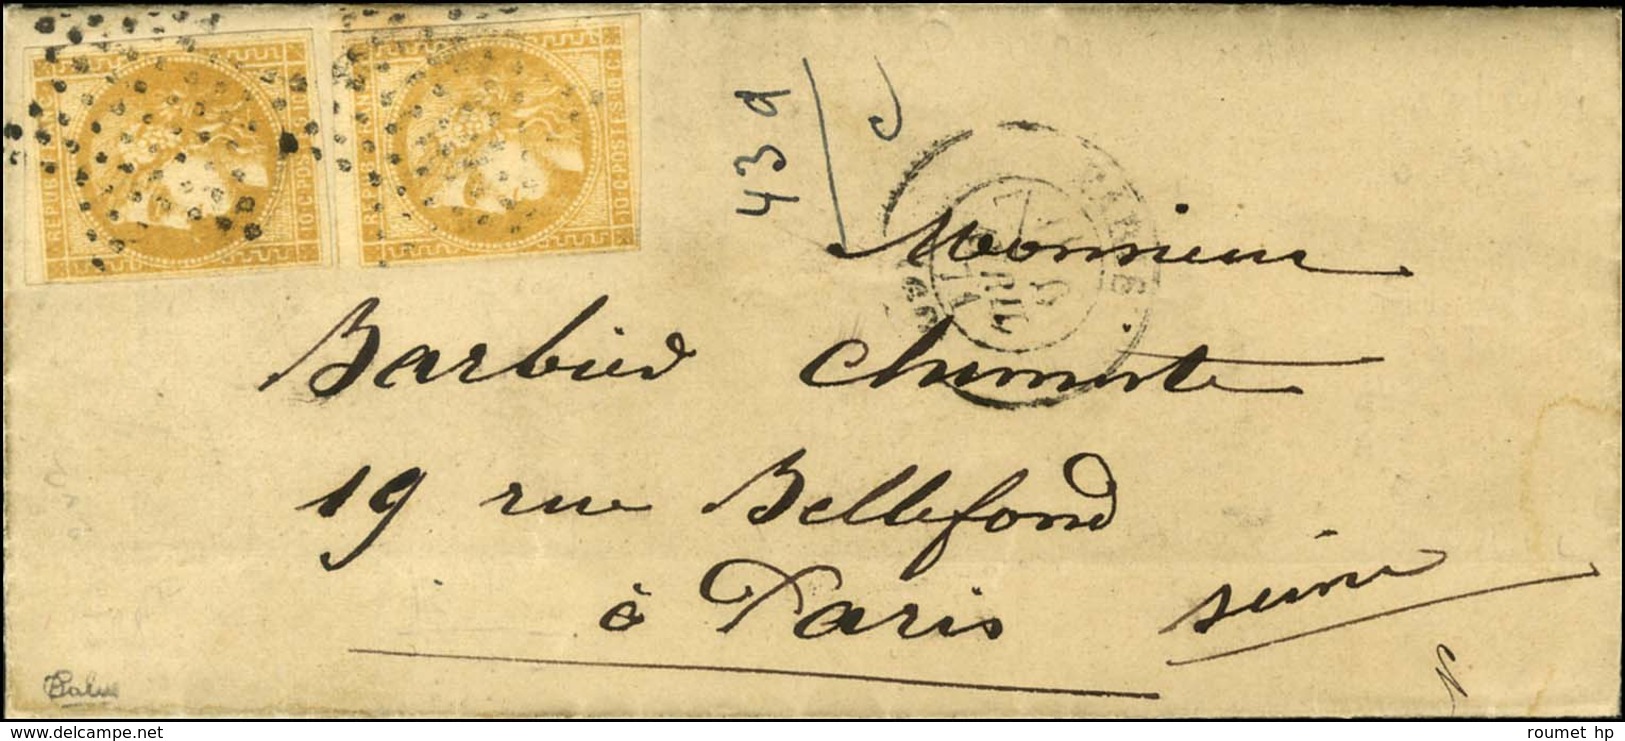 REPUB
10·C·POSTES·10·C
10·C·POSTES·10·C
43 a
c
Monsieur
Barbier Chimiste
19 rue Bellefond
à Paris seine
roumet hp
www.delcampe.net